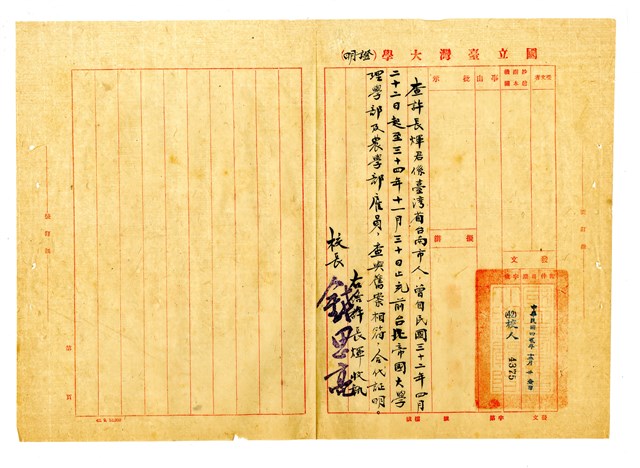 國立臺灣大學（證明）
查許長煇君係臺灣省台南市人，曾自民國三十二年四月
二十二日起至三十四年十一月三十日止充前台北帝國大學
理學部及農學部雇員，查與舊案相符，合代証明。
右給許長煇收執
校長 錢思亮
批示
擬辦
發文
中華民國四貳年
校人
4375